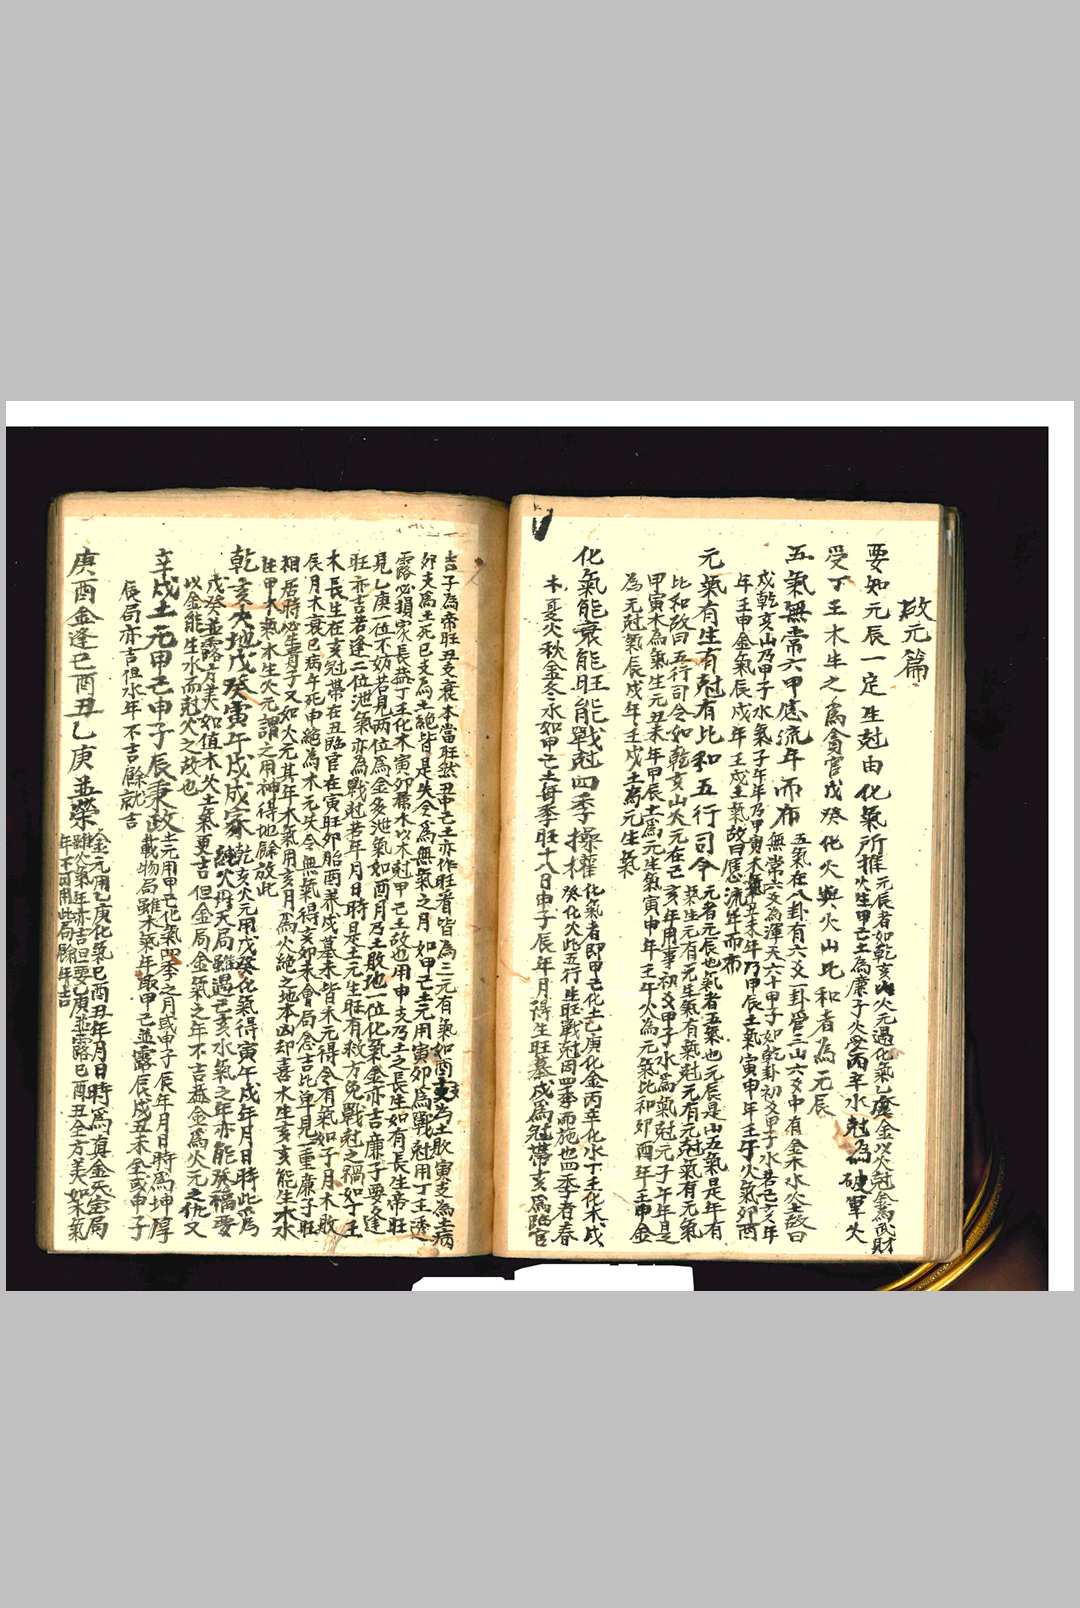 啟元篇
要知元辰一定生尅由化氣所推元辰者如乾亥山火元遇化氣乙庚金以火尅金為武財
火生甲己土為廉子火受丙辛水尅為破軍火
受丁壬木生之為貪官戊癸化火與火山比和者為元辰
五氣無常六甲應流年而布五氣在八卦有六爻一卦管三山六爻中有金木水火土故曰
無常六爻為渾天六十甲子如乾卦初爻甲子水若己亥年
戌乾亥山乃甲子水氣子午年乃甲寅木氣丑未年乃甲辰土氣寅申年壬午火氣卯酉
年壬申金氣辰戌年壬戌土氣故曰應流年而布
元氣有生有尅有比和五行司令元者元辰也氣者五氣也元辰是山五氣是年有
氣生元有元生氣有氣尅元有元尅氣有元氣
比和故曰五行司令如乾亥山火元在己亥年用事初爻甲子水為氣尅元子午年是
甲寅木為氣生元丑未年甲辰土為元生氣寅申年壬午火為元氣比和卯酉年壬申金
為元尅氣辰戌年壬戌土為元生氣
化氣能衰能旺能戰尅四季操權化氣者即甲己化土乙庚化金丙辛化水丁壬化木戊
癸化火此五行生旺戰尅因四季而施也四季者春
木夏火秋金冬水如甲己土每季旺十八日申子辰年月得生旺墓戌為冠帶亥為臨官
吉子為帝旺丑支衰本當旺然丑中己土亦作旺看皆為三元有氣如酉支為土敗寅支為土病
卯支為土死巳支為土絕皆是失令為無氣之月如甲己土元用寅卯為戰尅用丁壬透
露必損家長蓋丁壬化木寅卯屬木以木尅甲己土故也用申支乃土之長生如有長生帝旺
見乙庚一位不妨若見兩位為金多泄氣如酉月乃土敗地一位化氣金亦吉廉子要逢
旺亦吉若逢二位泄氣亦為戰尅若年月日時是土元生旺有救方免戰尅之禍如丁壬
木長生在亥冠帶在丑臨官在寅旺卯胎酉養戌墓未皆木元得令有氣如子月木敗
辰月木衰巳病午死申絕為木元失令無氣得亥卯未會局愈吉比單見一重廉子旺
相居時必生貴子又如火元其年木氣用亥月為火絕之地本凶却喜水生亥亥能生木水
往甲木氣木生火元謂之用神得地餘放此
乾亥火地戊癸寅午戌成家乾亥火元用戊癸化氣得寅午戌年月日時此為
純火丹天局雖遇己亥水氣之年亦能發福要
戊癸並露方美如值木火土氣更吉但金局金氣之年不吉蓋金為火元之仇又
以金能生水而尅火之故也
辛戌土元甲己申子辰秉政土元用甲己化氣四季之月或申子辰年月日時為坤厚
載物局雖木氣年取甲己並露辰戌丑未全或申子
辰局亦吉但水年不吉餘就吉
庚酉金逢巳酉丑乙庚並榮金元用乙庚化氣巳酉丑年月日時為真金天字局
雖火氣年亦吉但要乙庚並露巳酉丑全方美如木氣
年不可用此局餘年吉